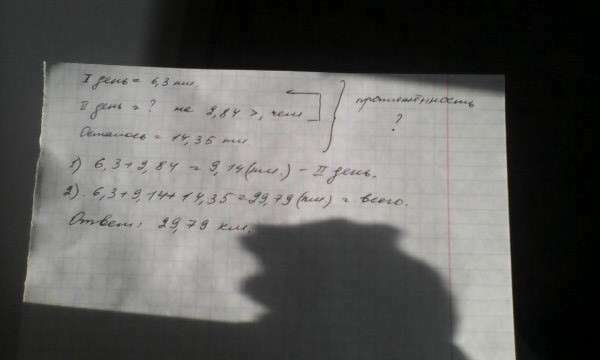 I день = 6,3 км.
II день = ? на 2,84 >, чем
Осталось = 14,35 км
протяжённость
?
1) 6,3+2,84 = 9,14 (км.) - II день.
2) 6,3+9,14+14,35=29,79 (км) = всего.
Ответ: 29,79 км.